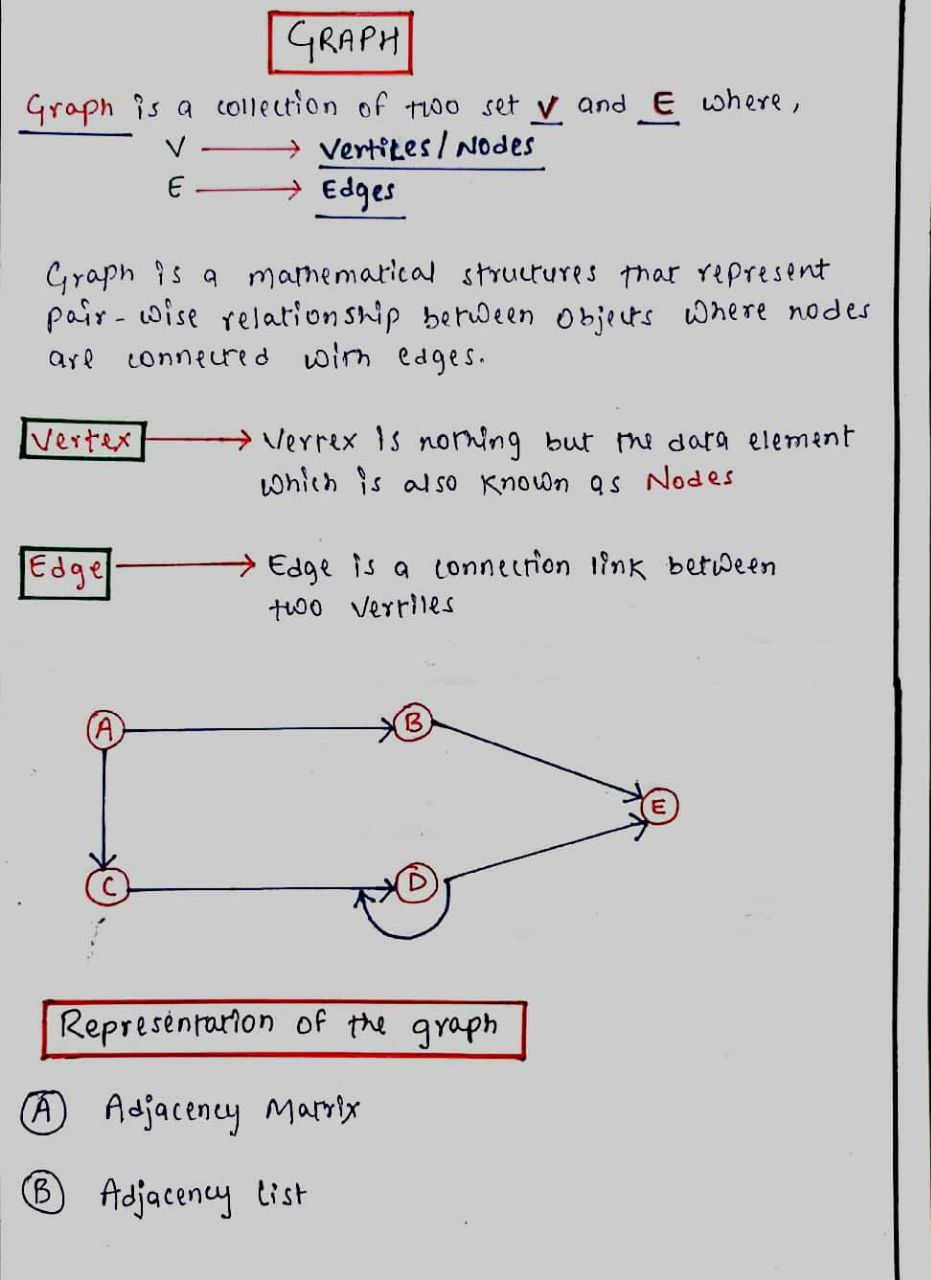 GRAPH
Graph is a collection of two set V and E where,
V → Vertices/Nodes
E → Edges
Graph is a mathematical structures that represent
pair-wise relationship between objects where nodes
are connected with edges.
Vertex → Vertex is nothing but the data element
which is also known as Nodes
Edge → Edge is a connection link between
two vertices
A B
E
C D
Representation of the graph
A Adjacency Matrix
B Adjacency list